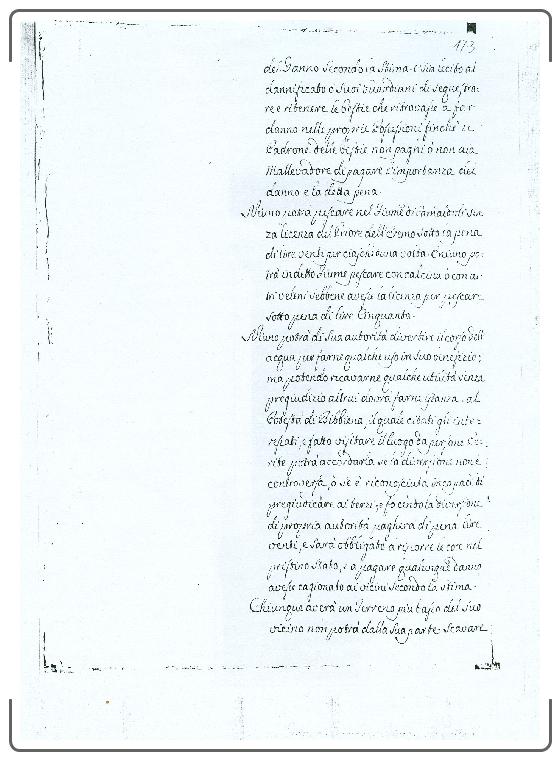 173
del Danno secondo la stima. e sia lecito al
dannificato e suoi Guardiani di sequestra-
re e ritenere le bestie che ritrovasse a far
danno nelle proprie possessioni finche il
Padrone delle bestie non paghi o non dia
Mallevadore di pagare l'importanza del
danno e la detta pena.
Niuno potrà pescare nel Fiume di Camaldoli sen-
za licenza del Priore dell'Eremo sotto la pena
di lire venti per ciascheduna volta. Chi uno po-
trà in detto fiume pescare con calcina o con al-
tri veleni sebbene avesse la licenza per pescare
sotto pena di lire Cinquanta.
Niuno potrà di sua autorità divertire il corso dell'
acqua per farne qualche uso in suo benefizio;
ma potendo ricavarne qualche utilità senza
pregiudizio altrui dovrà farne istanza al
Potestà di Bibbiena, il quale citati gli inte-
ressati, e fatto visitare il luogo da persone Pe-
rite potrà accordarla se la diversione non è
controversa, o se è riconosciuta incapaci di
pregiudicare ai terzi, e facendo la diversione
di propria autorità pagherà di pena lire
venti, e sarà obbligato a ridurre le cose nel
pristino stato, e a pagare qualunque danno
avesse cagionato ai vicini secondo la stima.
Chiunque averà un Terreno più basso del suo
vicino non potrà dalla sua parte scavare